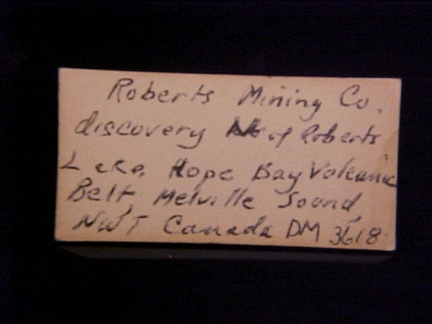 Roberts Mining Co.
discovery N of Roberts
Lake, Hope Bay Volcanic
Belt, Melville Sound
NWT Canada DM 3618